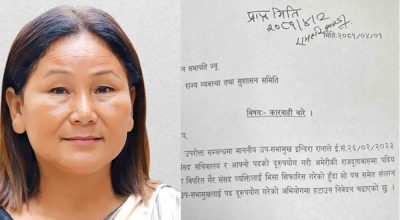 प्राप्त मिति
२०८१/४/२
मिति:२०८१/०४/०१
न सभापति ज्यू
राज्य व्यवस्था तथा सुशासन समिति
विषयः- कारवाही बारे ।
उपरोक्त सम्बन्धमा माननीय उप-सभामुख इन्दिरा रानाले ई.सं.२६/०२/२०२३
संसद सचिवालय र आफ्नो पदको दुरूपयोग गरी अमेरीकी राजदूतावासमा पदिय
विपरित गैर संसद व्यक्तिलाई भिसा सिफारिस गरेको हुँदा सो पत्र समेत संलग्न
उप-सभामुखलाई पद दूरुपयोग गरेको अभियोगमा हटाउन निवेदन चढाएको छु ।